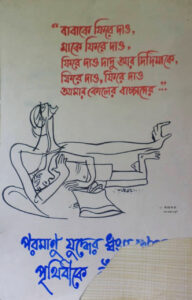 "বাবাকে ফিরে দাও,
মাকে ফিরে দাও,
ফিরে দাও দাদু আর দিদিমাকে,
ফিরে দাও, ফিরে দাও
আমার কোলের বাচ্চাদের..."
পরমাণু যুদ্ধের
পৃথিবীকে